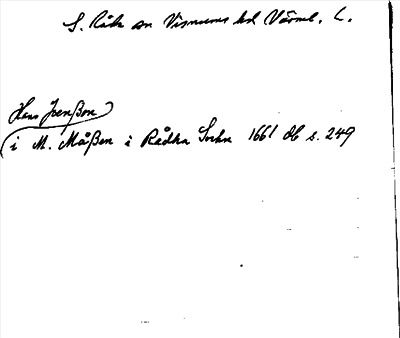 S. Råda sn Visnums hd Värml. L.
Hans Joenßon
i M. Måßen i Rådha Sochn 1661 db s. 249